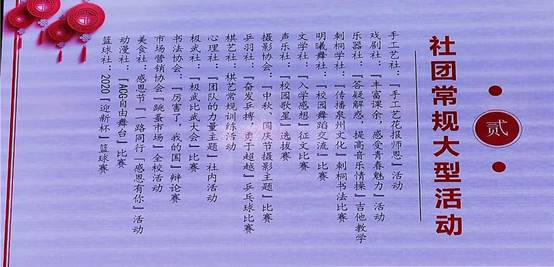 贰
社团常规大型活动
手工艺社：『手工艺花报师恩』活动
戏剧社：『丰富课余，感受青春魅力』活动
乐器社：『答疑解惑，提高音乐情操』吉他教学
刺桐学社：『传播泉州文化』刺桐书法比赛
明曦舞社：『校园舞蹈交流』比赛
文学社：『入学感想』征文比赛
声乐社：『校园歌星』选拔赛
摄影协会：『中秋、国庆节摄影主题』比赛
乒羽社：『奋发乒搏，勇于超越』乒乓球比赛
棋艺社：棋艺常规训练活动
心理社：『团队的力量主题』社内活动
极武社：『极武比武大会』比赛
书法协会：『厉害了，我的国』辩论赛
市场营销协会『跳蚤市场』全校活动
美食社：感恩节『一路同行，感恩有你』活动
动漫社：『ACG自由舞台』比赛
篮球社：2020『迎新杯』篮球赛